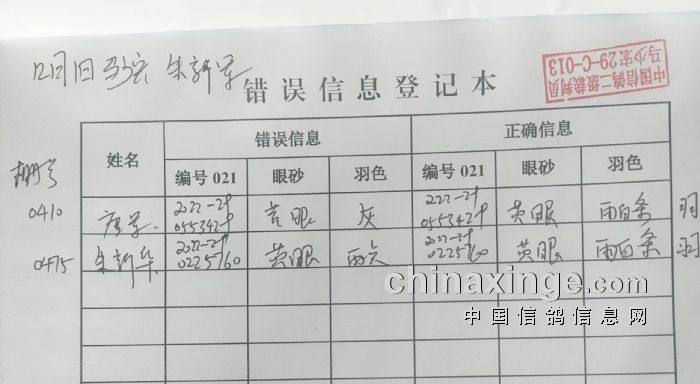 12月1日 马少宏 朱新军
中国信鸽二级裁判员
马少宏 29-C-013
错误信息登记本
姓名 错误信息 正确信息
编号 021 眼砂 羽色 编号 021 眼砂 羽色
棚号
0410 2022-29 0553429 黄眼 灰 2022-29 0553429 黄眼 雨白条 羽
0475 朱新华 2022-29 0225760 黄眼 雨点 2022-29 0225760 黄眼 雨白条 羽
chinaxinge.com
中国信鸽信息网